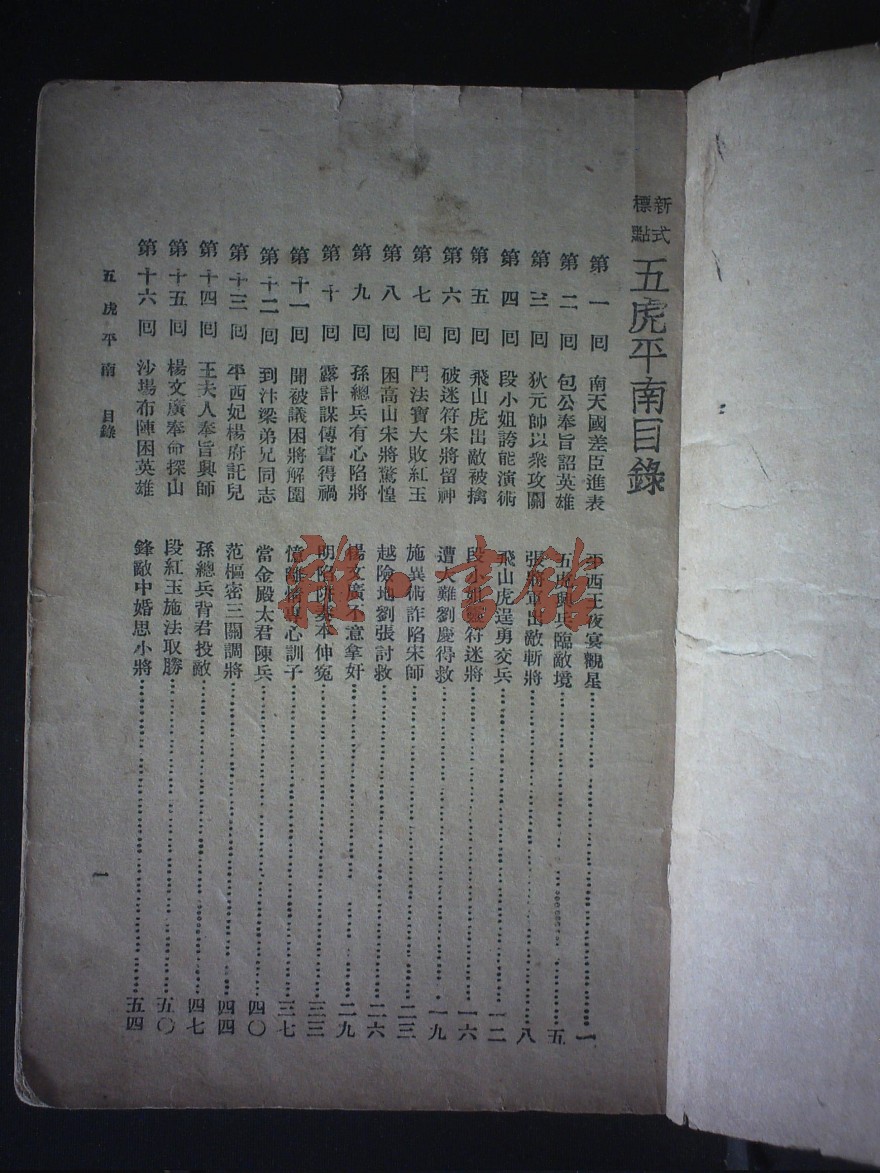 新式標點
五虎平南目錄
第一回 南天國差臣進表 平西王夜宴觀星 一
第二回 包公奉旨詔英雄 五虎興兵臨敵境 五
第三回 狄元帥以衆攻關 張將軍出敵斬將 八
第四回 段小姐誇能演術 飛山虎逞勇交兵 一二
第五回 飛山虎出敵被擒 段 符迷將 一六
第六回 破迷符宋將留神 遭大難劉慶得救 一九
第七回 鬥法寶大敗紅玉 施異術詐陷宋師 二三
第八回 困高山宋將驚惶 越險地劉張討救 二六
第九回 孫總兵有心陷將 楊文廣不意拿奸 二九
第十回 露計謀傳書得禍 明陷阱奏本伸冤 三三
第十一回 聞被議困將解圍 憶離情專心訓子 三七
第十二回 到汴梁弟兄同志 當金殿太君陳兵 四〇
第十三回 平西妃楊府託兒 范樞密三關調將 四四
第十四回 王夫人奉旨興師 孫總兵背君投敵 四七
第十五回 楊文廣奉命探山 段紅玉施法取勝 五〇
第十六回 沙場布陣困英雄 鋒敵中婚思小將 五四
五虎平南 目錄
一
雅·書館